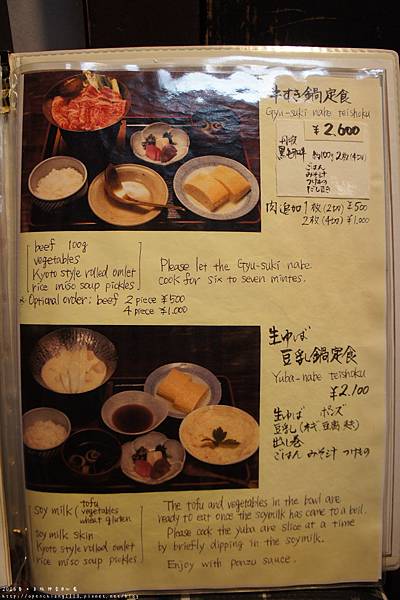 牛すき鍋定食
Gyu-suki nabe teishoku
¥2,600
丹波
黒毛和牛 約100g 2枚(4切)
ごはん
みそ汁
つけもの
だし巻き
肉追加 1枚(2切) ¥500
2枚(4切) ¥1,000
beef 100g
vegetables
Kyoto style rolled omlet
rice miso soup pickles
Please let the Gyu-suki nabe
cook for six to seven mintes.
※Optional order: beef 2 piece ¥500
4 piece ¥1,000
生ゆば
豆乳鍋定食
Yuba-nabe teishoku
¥2,100
生ゆば ポンズ
豆乳(水菜 豆腐 麸)
出し巻
ごはん みそ汁 つけもの
soy milk (tofu
vegetables
wheat gluten
soy milk skin
Kyoto style rolled omlet
rice miso soup pickles
The tofu and vegetables in the bowl are
ready to eat once the soymilk has came to a boil.
Please cook the yuba are slice at a time
by briefly dipping in the soymilk.
Enjoy with ponzu sauce.